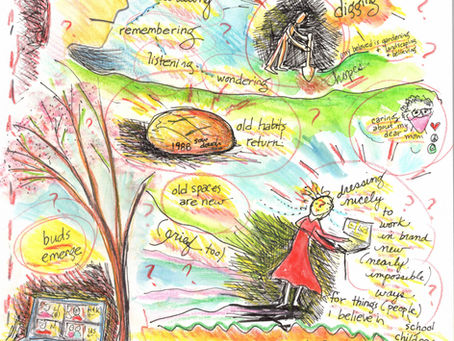 digging
remembering
my beloved is gardening
+ believing
listening
wondering
hopes
old habits
return
1988
sour
dough
caring
about my
dear
mom
old spaces
are new
grief too!
buds
emerge
dressing
nicely
to
work
in brand
new
(nearly)
impossible
ways
for things (people)
i believe in
school